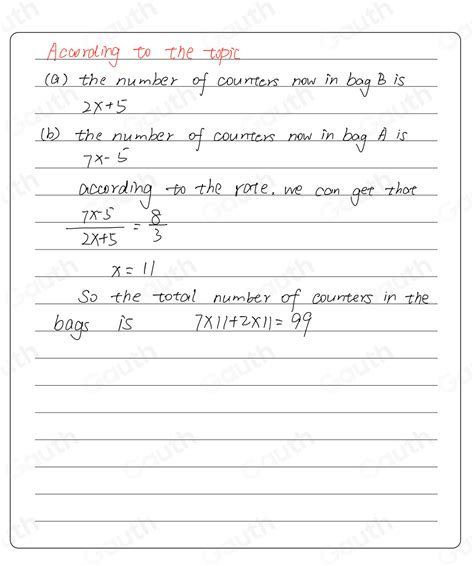 According to the topic
(a) the number of counters now in bag B is
2x+5
(b) the number of counters now in bag A is
7x-5
according to the rate, we can get that
7x-5 / 2x+5 = 8 / 3
x = 11
So the total number of counters in the
bags is 7×11+2×11=99